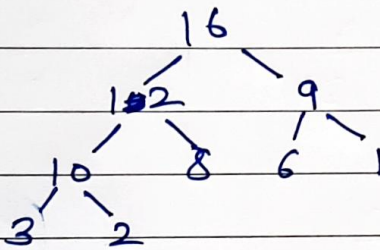 16
12 9
10 8 6
3 2